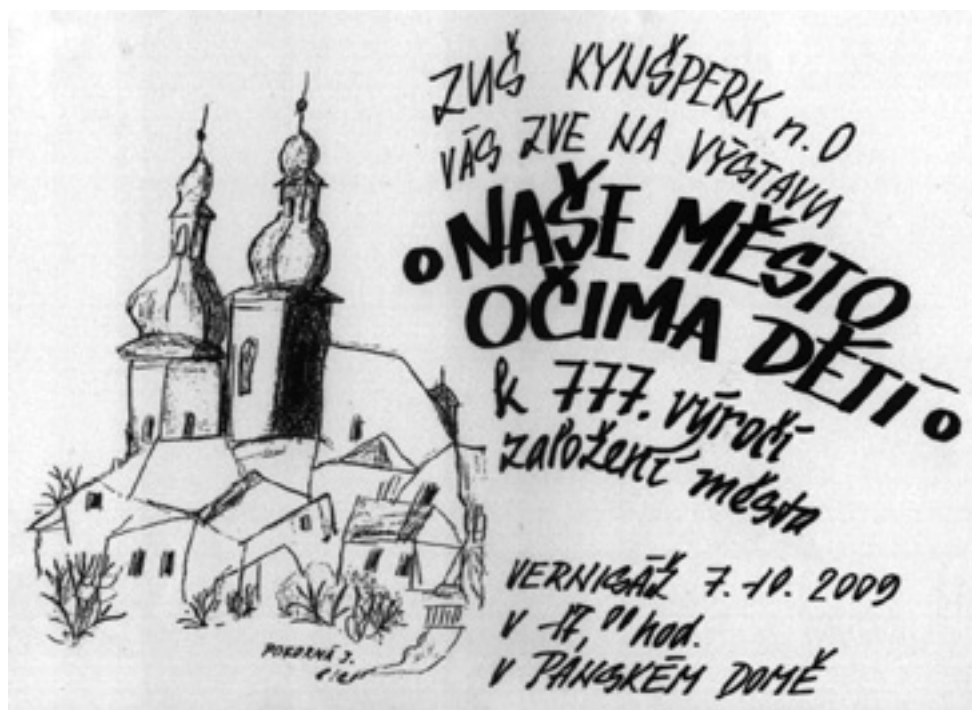 ZUŠ KYNŠPERK n. O
VÁS ZVE NA VÝSTAVU
NAŠE MĚSTO
OČIMA DĚTÍ
k 777. výročí
založení města
VERNISÁŽ 7. 10. 2009
V 17,00 hod.
V PANSKÉM DOMĚ
POKORNÁ J.